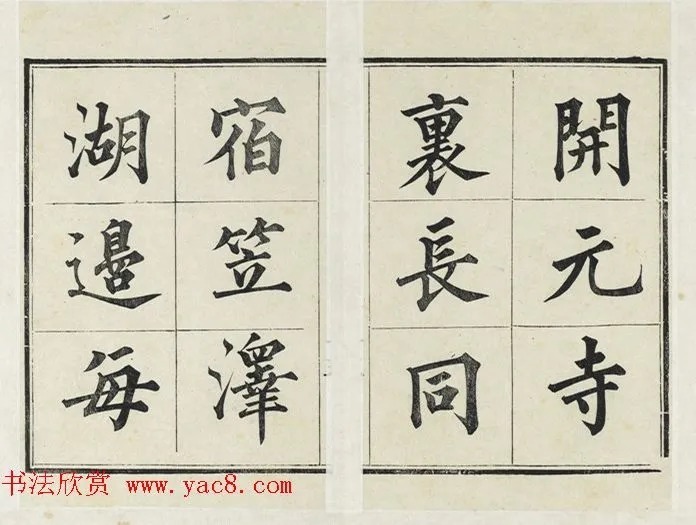 開元寺
裏長同
宿笠澤
湖邉每
书法欣赏 www.yac8.com